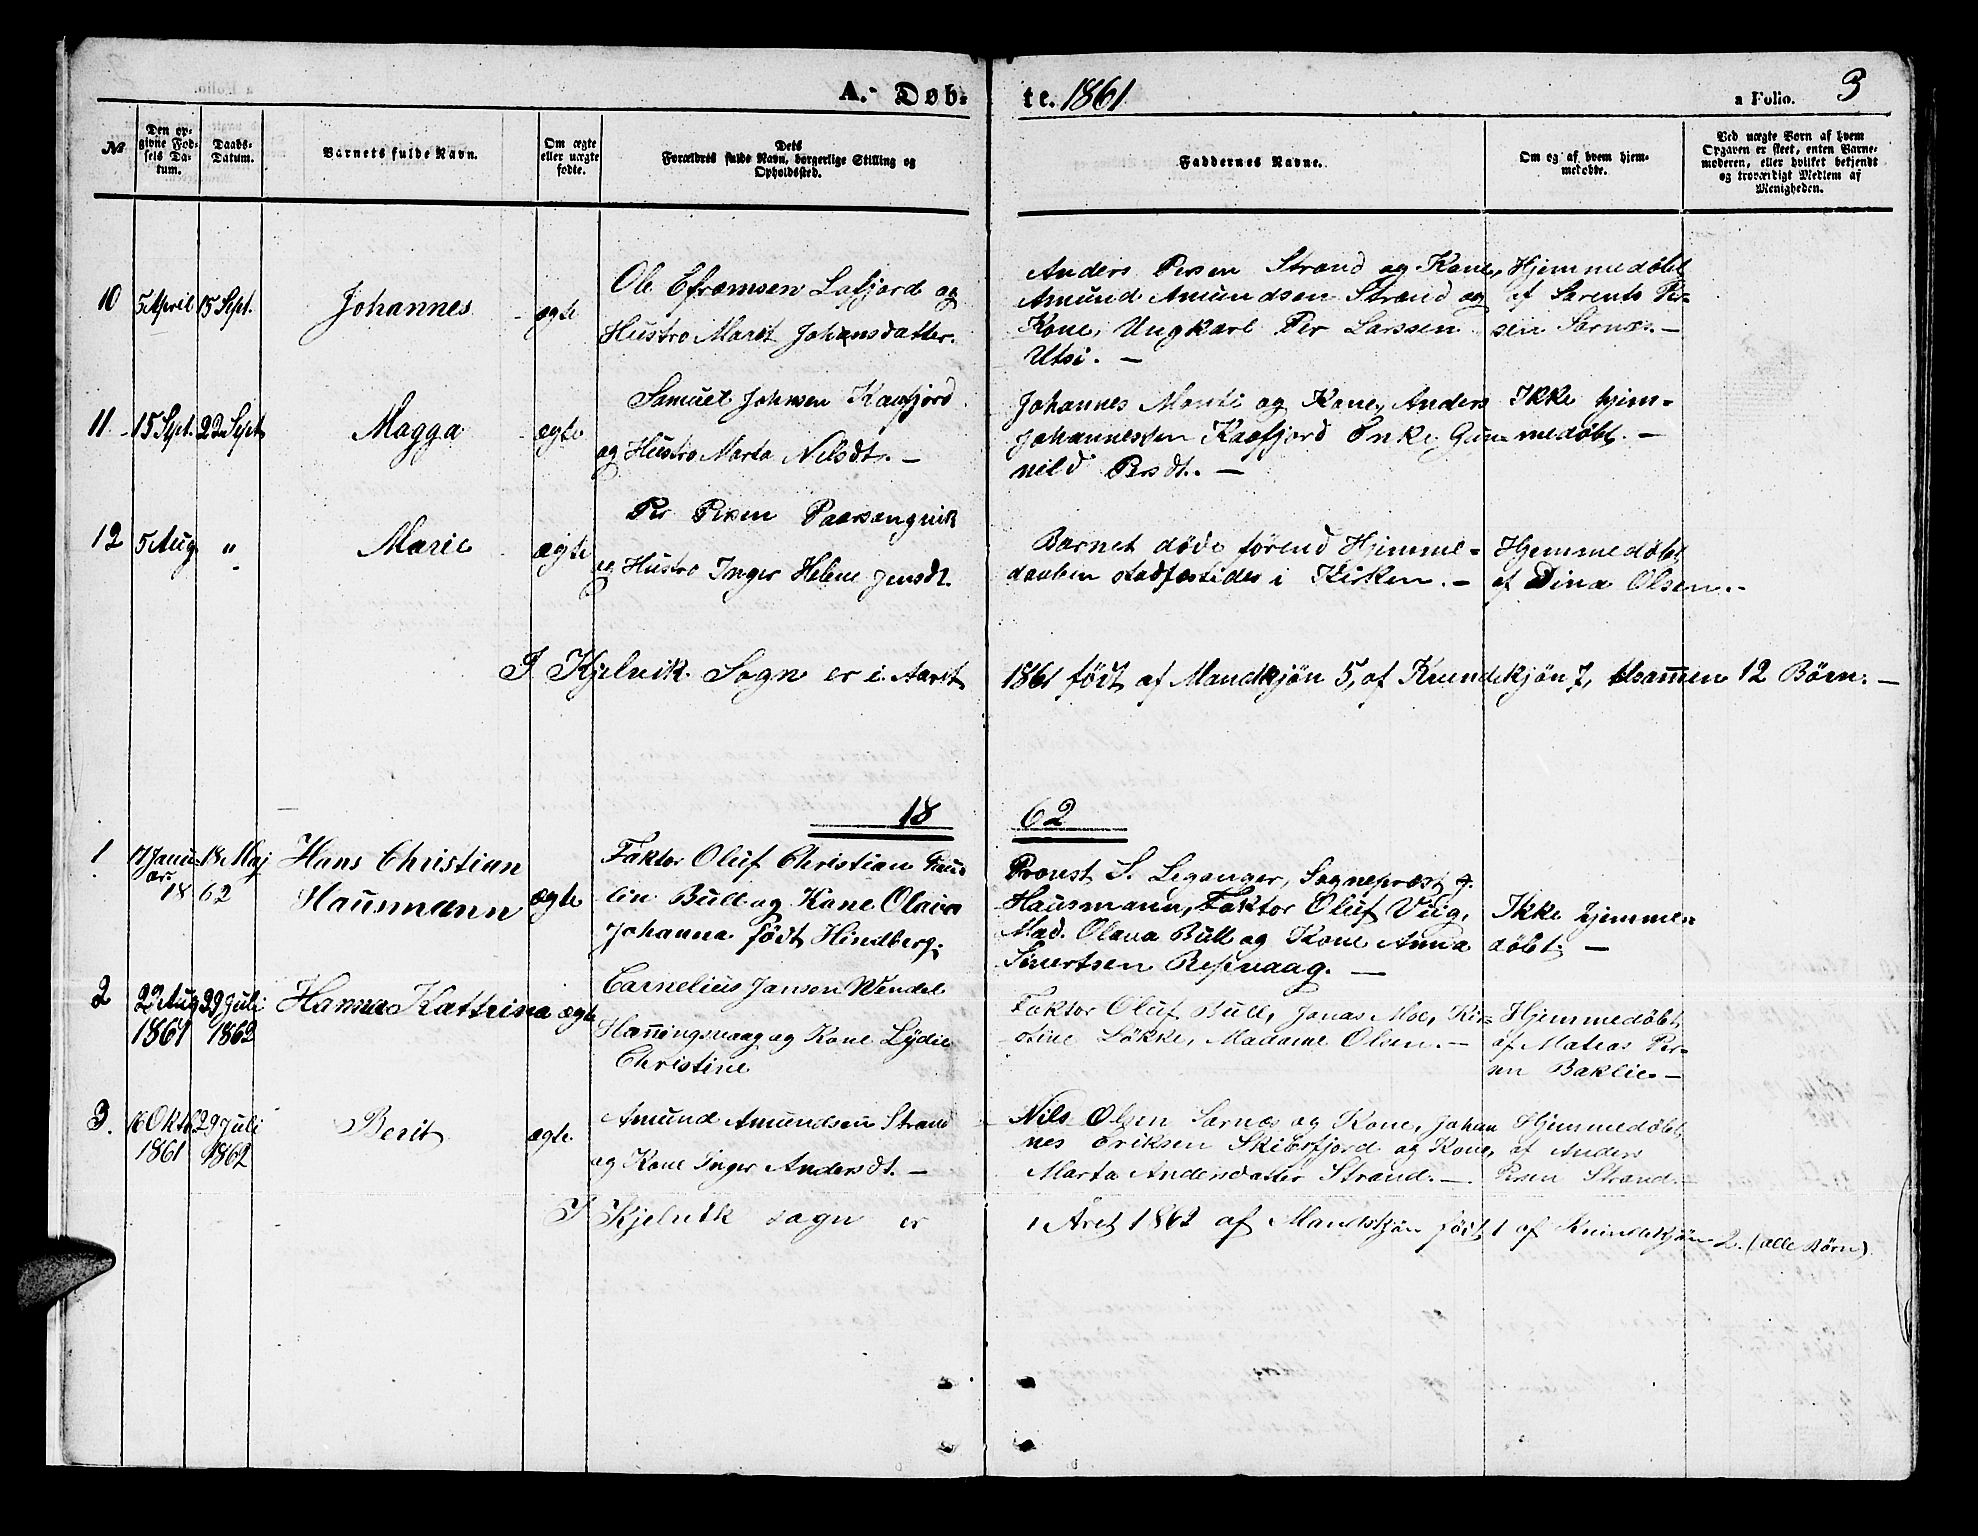 A. Døb-
te. 1861
a Folio. 3
№
Den op-
givne Fød-
sels Da-
tum.
Daabs-
Datum.
Barnets fulde Navn.
Om ægte
eller uægte
fødte.
Dets
Forældres fulde Navn, borgerlige Stilling og
Opholdssted.
Faddernes Navne.
Om og af hvem hjem-
medøbt.
Ved uægte Børn af hvem
Opgaven er skeet, enten Barne-
moderen, eller hvilket bekjendt
og troværdigt Medlem af
Menigheden.
10 5 April 15 Sept. Johannes ægte
Ole Efromsen Lafjord og
Hustro Marit Johansdatter.
Anders Persen Strand og Kone,
Amund Amundsen Strand og
Kone, Ungkarl Per Larssen
Utsi. —
Hjemmedøbt
af Sarents Per-
sen Sarnæs. —
11 15 Sept. 22 Sept Magga ægte
Samuel Johnsen Kaafjord
og Hustro Marta Nilsdt. —
Johannes Monti og Kone, Anders
Johannessen Kaafjord Enke Gun-
nild Persdt. —
Ikke hjem-
medøbt. —
12 5 Aug " Marie ægte
Per Persen Paarsangvik
og Hustro Inger Helene Jensdt.
Barnet døde førend Hjemme-
daaben stadfæstedes i Kirken. —
Hjemmedøbt
af Dina Olsen. —
I Kjelvik Sogn er i Aaret
1861 født af Mandkjøn 5, af Kvindekjøn 7, tilsammen 12 Børn. —
18
62
1 17 Janu-
ar
18 Maj
1862
Hans Christian
Hausmann
ægte
Faktor Oluf Christian Pau-
lin Bull og Kone Olava
Johanna født Hindberg.
Provst S. Leganger, Sognepræst J.
Hausmann, Faktor Oluf Viig,
Mad. Olava Bull og Kone Anna
Sivertsen Repvaag. —
Ikke hjemme-
døbt. —
2 22 Aug
1861
29 Juli
1862
Hanna Kattrina ægte
Cornelius Jansen Wendel
Honningsvaag og Kone Lydie
Christine
Faktor Oluf Bull, Jonas Moe, Kir-
stine Løkke, Madame Olsen. —
Hjemmedøbt
af Matias Per-
sen Baklie. —
3. 16 Oktb
1861
29 Juli
1862
Berit ægte
Amund Amundsen Strand
og Kone Inger Andersdt. —
Nils Olsen Sarnæs og Kone, Johan
nes Eriksen Skibsfjord og Kone,
Marta Andersdatter Strand. —
Hjemmedøbt
af Anders
Persen Strand. —
I Kjelvik Sogn er
i Aret 1862 af Mandskjøn født 1 af Kvindekjøn 2. (alle Børn).